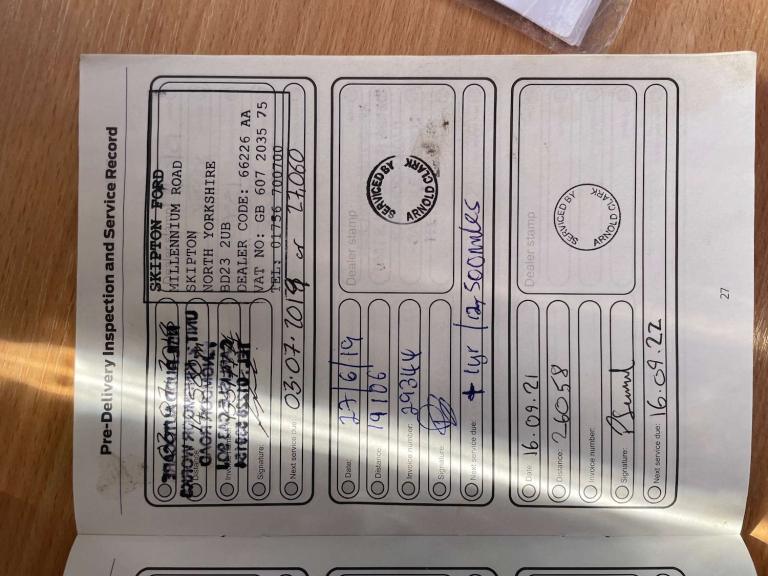 Pre-Delivery Inspection and Service Record
SKIPTON FORD
MILLENNIUM ROAD
SKIPTON
NORTH YORKSHIRE
BD23 2UB
DEALER CODE: 66226 AA
VAT NO: GB 607 2035 75
TEL: 01756 700700
Signature:
Next service due: 03.07.2019 or 27,060
Dealer stamp
SERVICED BY
ARNOLD CLARK
Date: 27/6/19
Distance: 19106
Invoice number: 29344
Signature:
Next service due: + 1yr / 12,500 miles
Dealer stamp
SERVICED BY
ARNOLD CLARK
Date: 16.09.21
Distance: 26058
Invoice number:
Signature:
Next service due: 16.09.22
27